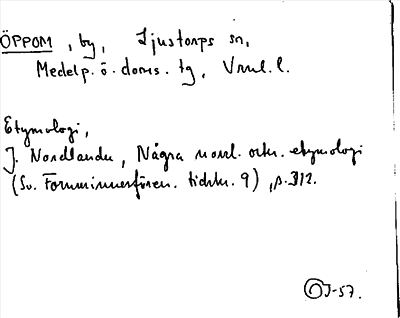 ÖPPOM, by, Ljustorps sn,
Medelp. ö. doms. tg, Vnul. l.
Etymologi,
J. Nordlander, Några norrl. ortn. etymologi
(Sv. Fornminnesfören. tidskr. 9), s. 312.
J-57.